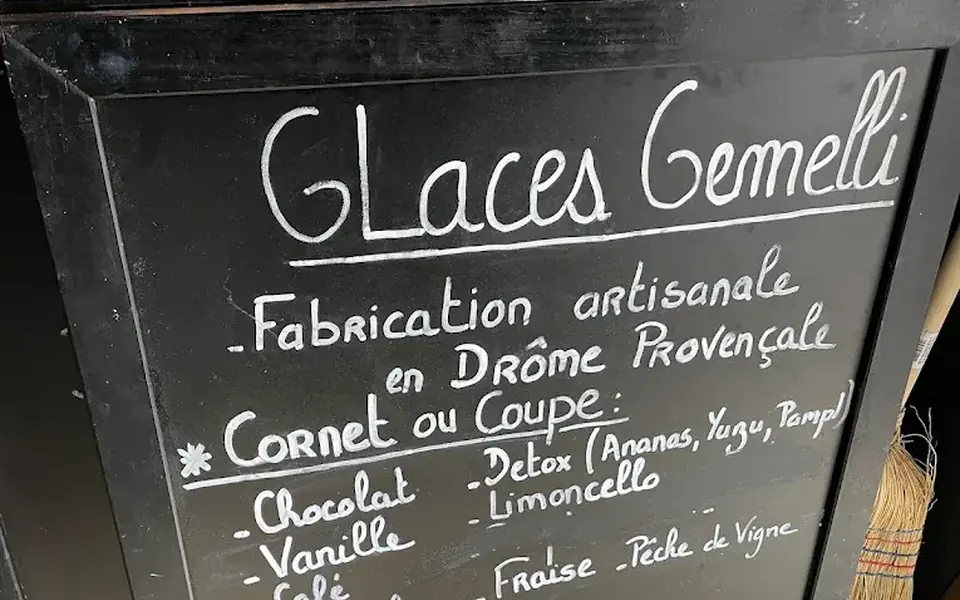 GLaces Gemelli
- Fabrication artisanale
en Drôme Provençale
* Cornet ou Coupe :
- Chocolat
- Detox (Ananas, Yuzu, Pampl)
- Vanille
- Limoncello
Café
- Fraise - Pêche de Vigne